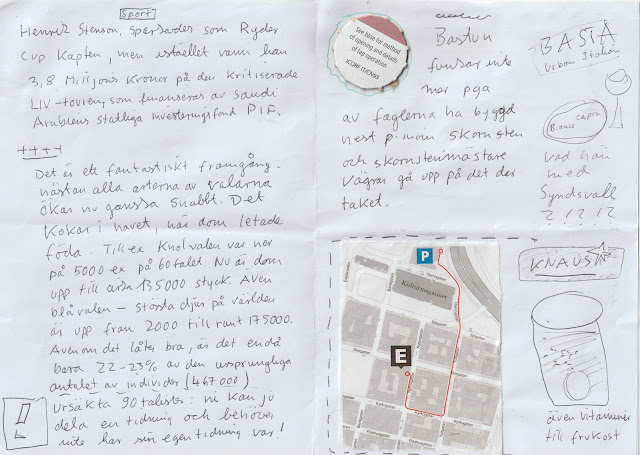 Sport
Henrik Stenson, sparkades som Ryder
Cup Kapten, men istället vann han
3,8 Miljons Kronor på den Kritiserade
LIV-touren, som finansieras av Saudi
Arabiens statliga investeringsfond PIF.
++++
Det är ett fantastiskt framgång.
nästan alla arterna av valarna
ökar nu ganska snabbt. Det
Kokar i havet, när dom letade
föda. Till ex Knölvalen var ner
på 5000 ex på 60 talet. Nu är dom
upp till cirka 135000 styck. Även
blåvalen – största djur på världen
är upp från 2000 till runt 175000.
Även om det låter bra, är det endå
bara 22-23% av den ursprungliga
antalet av individer (467000)
Ursäkta 90 talister: ni kan ju
dela en tidning och behöver
inte har sin egen tidning var!
See base for method
of opening and details
of cap operation
Bastun
funkar inte
mer pga
av faglerna ha byggd
nest p. min skornsten
och skornstenmästare
vägras gå upp på det der
taket.
BASIA
Urban Italian
Bianco
capra
vad hän
med
Syndsvall
? ! ? ! ?
P
Kulturmagasinet
E
Storgatan
Kyrkogatan
KNAUSIN
även vitaminer
till frukost